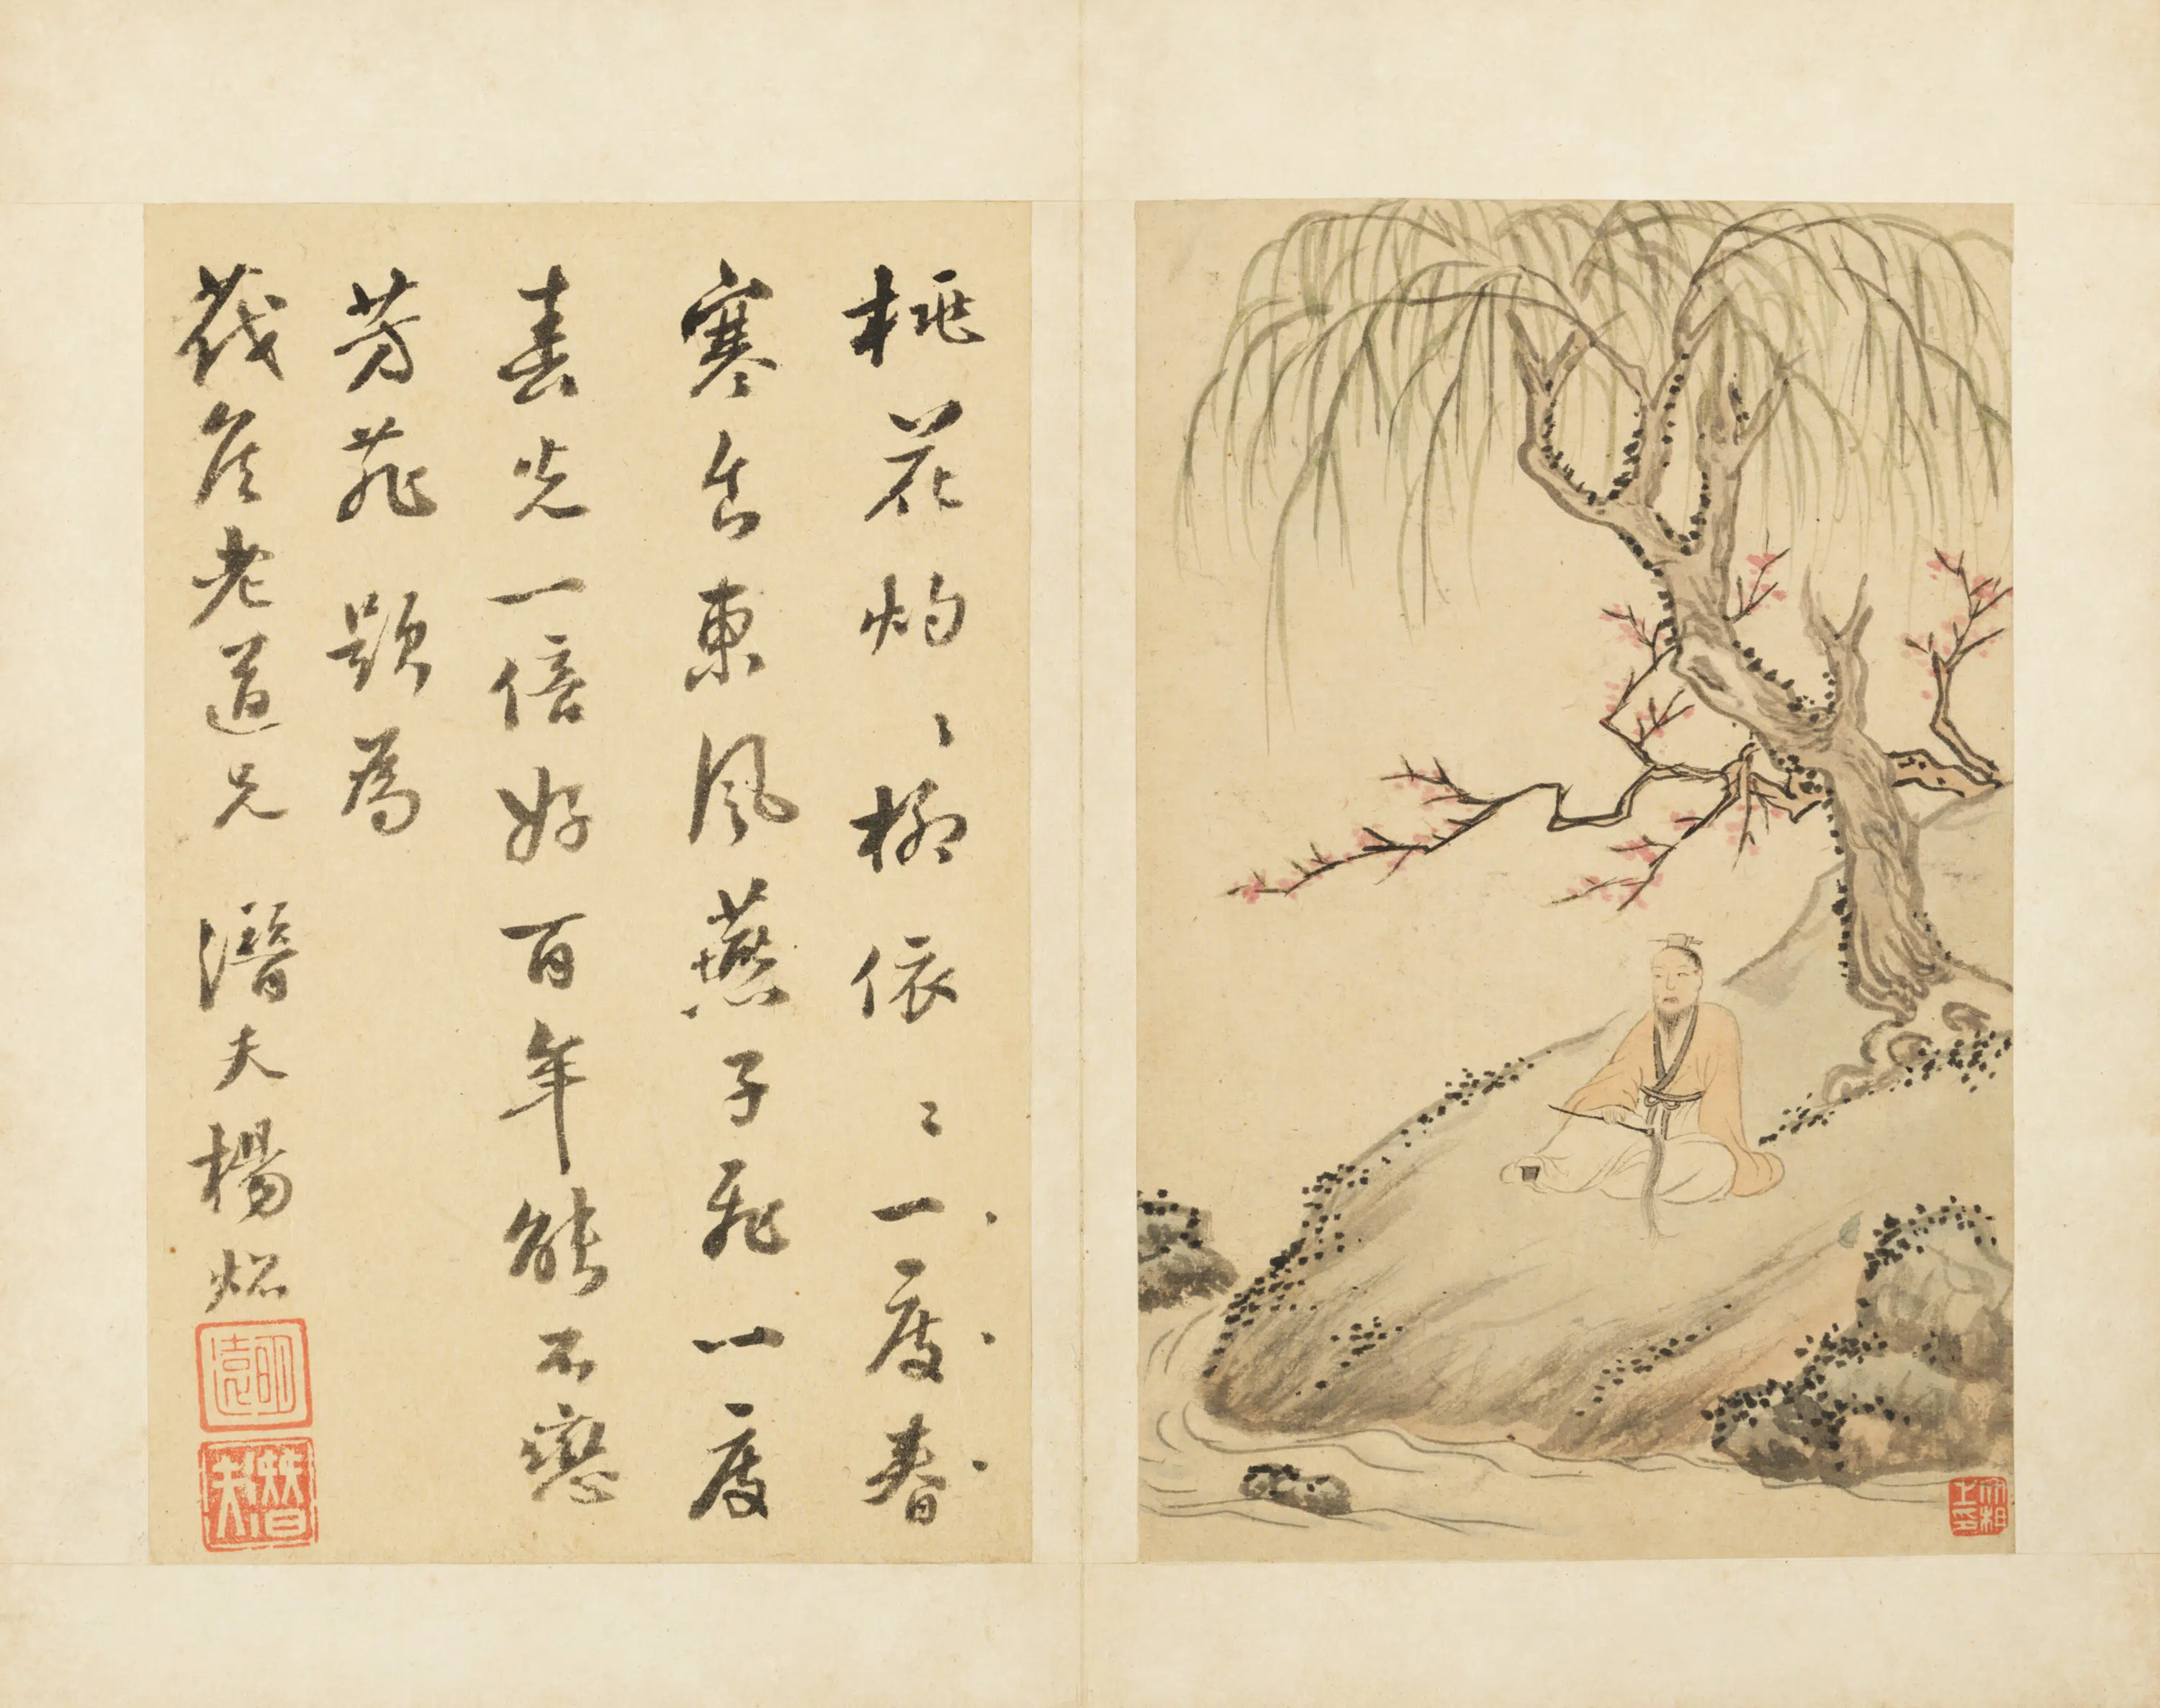 桃花灼、柳依〻一度春
寒食東風燕子飛一度
春光一倍好百年能不戀
芳菲 題為
茷矦老道兄 潛夫楊炤
明遠
潛夫